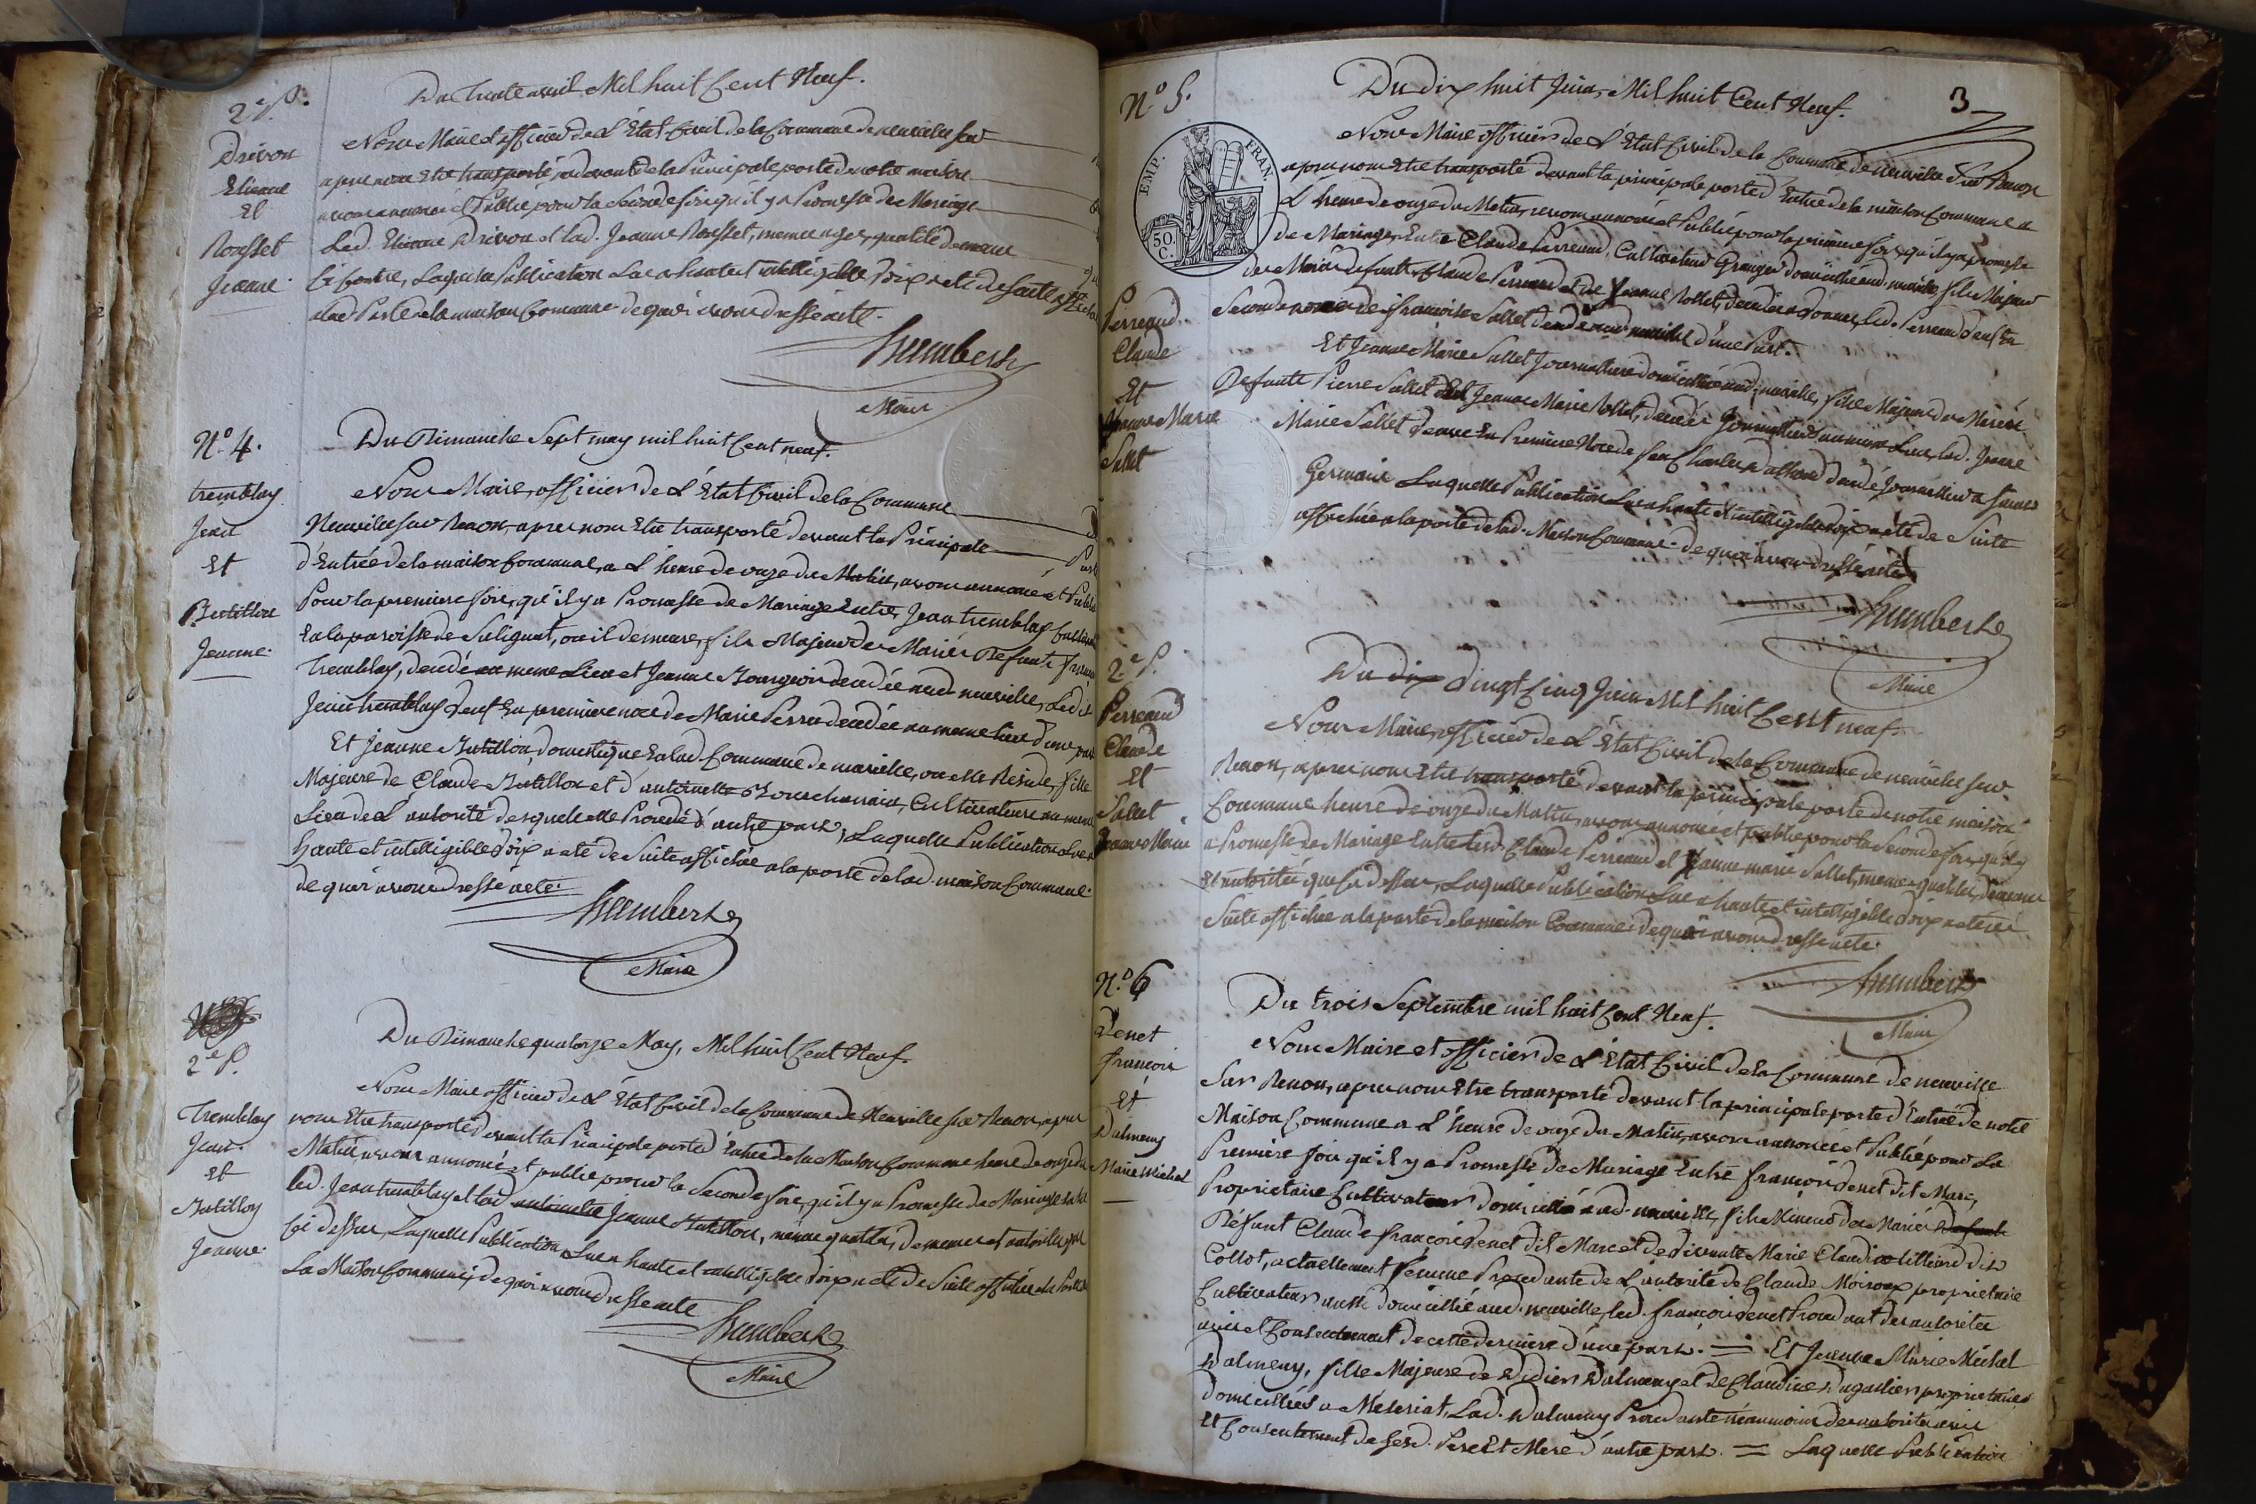 2e P.
Drivon
Etienne
Et
Rousset
Jeanne.
Du trente avril Mil huit Cent Neuf.
Nous Maire et officier de L'Etat Civil de la Commune de neuville sur
apres nous Etre transporté au devant de la Principale porte de notre maison
avons annoncé et Publié pour la Seconde fois qu'il y a Promesse de Mariage
Led. Etienne Drivon et lad. Jeanne Rousset, memes ages, qualité demeure
Ci contre, Laquelle Publication Lue a haute et intelligible voix a eté de Suite affichée
a lad. Porte de la maison Commune de quoi avons dressé acte.
Humbert
Maire
No. 4.
tremblay
Jean
Et
Butillon
Jeanne.
Du Dimanche Sept may mil huit Cent neuf.
Nous Maire, officier de L'Etat Civil de la Commune
Neuville sur Renon, apres nous Etre transporté devant la Principale Porte
d'Entrée de la maison Commune, a L'heure de onze du Matin, avons annoncé et Publié
Pour la premiere fois, qu'il y a Promesse de Mariage Entre Jean tremblay
En la paroisse de Suligniat, ou il demeure, fils Majeur de Mariés Defunts
Tremblay, decedé au meme Lieu et Jeanne Bourgeois decedée aud. neuville, Ledit
Jean tremblay veuf En premiere noce de Marie Perrin decedée au meme lieu d'une part
Et Jeanne Butillon, domestique En lad. Commune de neuville, ou elle Reside, fille
Majeure de Claude Butillon et d'antoinette Bourcharnin, Cultivateurs au meme
Lieu de L'autorité desquels elle Procede d'autre part, Laquelle Publication Lue a
haute et intelligible voix a eté de Suite affichée a la porte de lad. maison Commune.
de quoi avons dressé acte.
Humbert
Maire
2e P.
Tremblay
Jean.
Et
Butillon
Jeanne.
Du Dimanche quatorze May, Mil huit Cent Neuf.
Nous Maire officier de L'Etat Civil de la Commune de Neuville sur Renon, apres
nous Etre transporté devant la Principale porte d'Entrée de la Maison Commune heure de onze du
Matin, avons annoncé et publié pour la Seconde fois, qu'il y a Promesse de Mariage Entre
led. Jean tremblay et lad. antoinette Jeanne Butillon, même qualités, demeures et autorités que
Ci dessus, Laquelle Publication Lue a haute et intelligible voix a eté de Suite affichée a la Porte de
La Maison Commune, de quoi avons dressé acte
Humbert
Maire
3
No 5.
EMP. FRAN.
50. C.
Perreaud
Claude
Et
Jeanne Marie
Sallet
Du dix huit Juin, Mil huit Cent Neuf.
Nous Maire officier de L'Etat Civil de la Commune de Neuville sur Renon
apres nous Etre transporté devant la principale porte d'Entrée de la maison Commune a
L'heure de onze du Matin, avons annoncé et Publié pour la premiere fois qu'il y a promesse
de Mariage, Entre Claude Perreaud, Cultivateur Granger domicilié aud. neuville fils Majeur
de Mariés defunts Claude Perreaud et de Jeanne Rollet, decedés a led. Perreaud veuf En
Seconde noce de françoise Sallet decedée aud. neuville d'une Part.
Et Jeanne Marie Sallet Journaliere domiciliée aud. neuville, fille Majeure de Mariés
Defunts Pierre Sallet Et Jeanne Marie Rollet, decedés Journaliers au meme Lieu, lad. Jeanne
Marie Sallet veuve En Premiere Noce de feu Charles decedé Journalier a
Germain Laquelle Publication Lue a haute et intelligible voix a eté de Suite
affichée a la porte de lad. Maison Commune. de quoi avons dressé acte
Humbert
Maire
2e P.
Perreaud
Claude
Et
Sallet
Jeanne Marie
Du dix vingt Cinq Juin Mil huit Cent neuf.
Nous Maire, officier de L'Etat Civil de la Commune de neuville sur
Renon, apres nous Etre transporté devant la principale porte de notre maison
Commune heure de onze du Matin, avons annoncé et publié pour la Seconde fois, qu'il y
a Promesse de Mariage Entre lesd. Claude Perreaud et Jeanne marie Sallet, meme qualités, demeure
Et autorités que ci dessus, Laquelle Publication Lue a haute et intelligible voix a eté de
Suite affichée a la porte de la maison Commune de quoi avons dressé acte.
Humbert
Maire
No. 6
Venet
françois
Et
Dalmeny
Marie Michel
Du trois Septembre mil huit Cent Neuf.
Nous Maire et officier de L'Etat Civil de la Commune de neuville
Sur Renon, apres nous Etre transporté devant la principale porte d'Entrée de notre
Maison Commune a L'heure de onze du Matin, avons annoncé et Publié pour La
Premiere fois qu'il y a Promesse de Mariage Entre françois Venet dit Marc,
Proprietaire Cultivateur domicilié aud. neuville, fils Mineur de Mariés
Défunt Claude françois Venet dit Marc et de vivante Marie Claudine
Collot, actuellement femme Procedante de L'autorité de Claude Moiroux proprietaire
Cultivateur aussi domicilié aud. neuville, led. françois Venet Procedant des autorités
avis et Consentement de cette derniere d'une part. = Et Jeanne Marie Michel
Dalmeny, fille Majeure de Didier Dalmeny et de Claudine Dagallier proprietaires
domiciliés a Mézériat, Lad. Dalmeny Procedante neanmoins des autorités avis
Et Consentement de Sesd. Pere Et Mere d'autre part. = Laquelle Publication